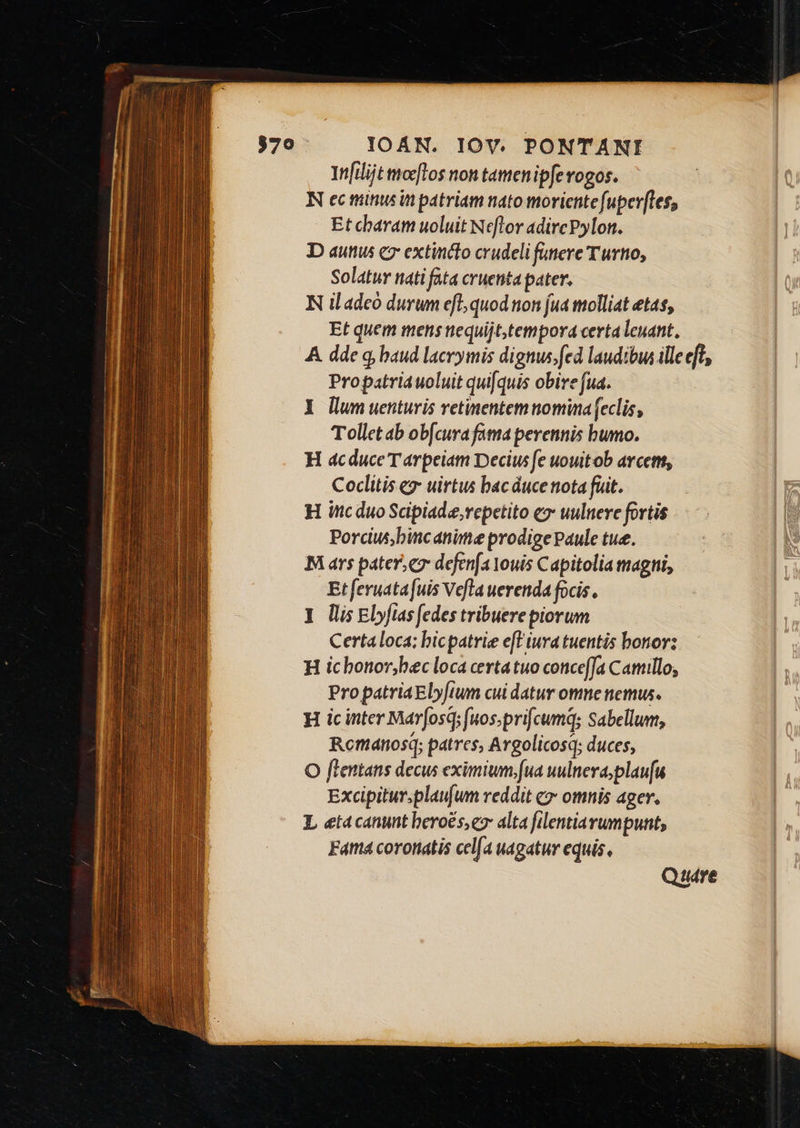 370 IOAN. IOV. PONTANI
Inſilijt mœſtos non tamen ipſe rogos.
N ec minus in patriam nato moriente ſuperſtes,
Et charam uoluit Neſtor adire Pylon.
D aunus & extincto crudeli funere Turno,
Solatur nati fata cruenta pater.
N il adeò durum eſt, quod non ſua molliat ætas,
Et quem mens nequijt, tempora certa leuant.
A dde q, haud lacrymis dignus, ſed laudibus ille eſt,
Pro patria uoluit quiſquis obire ſua.
I llum uenturis retinentem nomina ſeclis,
Tollet ab obſcura fama perennis humo.
H ac duce Tarpeiam Decius ſe uouit ob arcem,
Coclitis & uirtus hac duce nota fuit.
H inc duo Scipiadæ, repetito & uulnere fortis
Porcius, hinc animæ prodige Paule tuæ.
M ars pater, & defenſa Iouis Capitolia magni,
Et ſeruata ſuis Veſta uerenda focis.
I llis Elyſias ſedes tribuere piorum
Certa loca; hic patriæ eſt iura tuentis honor:
H ic honor, hæc loca certa tuo conceſſa Camillo,
Pro patria Elyſium cui datur omne nemus.
H ic inter Marſosq; ſuos, priſcumq; Sabellum,
Romanosq; patres, Argolicosq; duces,
O ſtentans decus eximium, ſua uulnera, plauſu
Excipitur, plauſum reddit & omnis ager.
L æta canunt heroës, & alta ſilentia rumpunt,
Fama coronatis celſa uagatur equis.
Quare